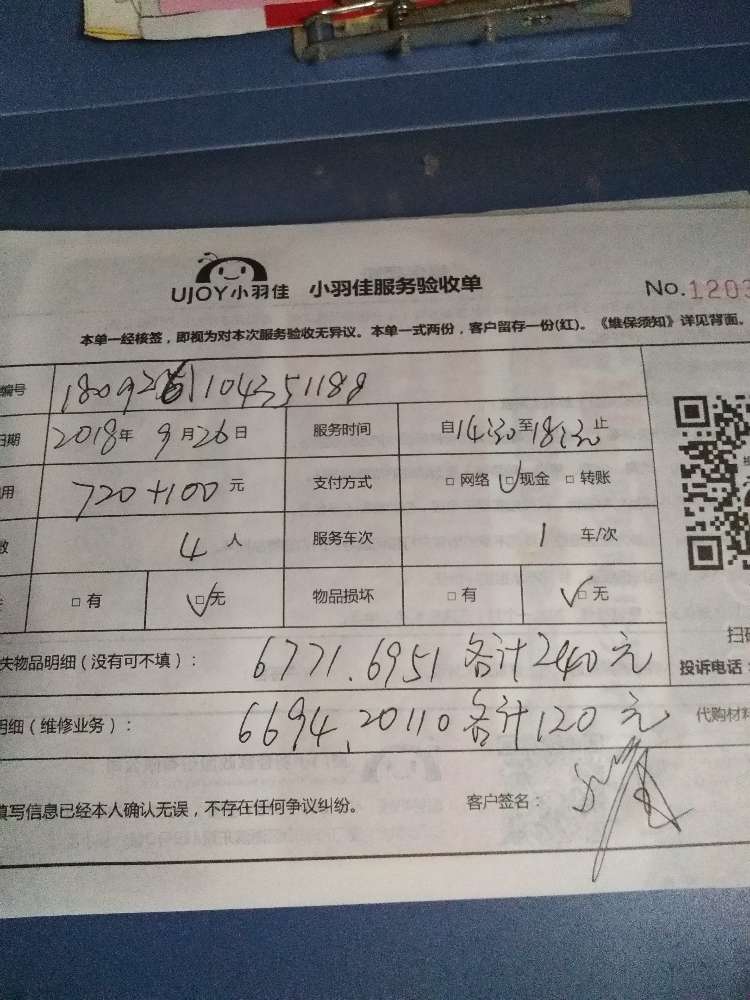 UJOY小羽佳 小羽佳服务验收单 No.1203
本单一经核签，即视为对本次服务验收无异议。本单一式两份，客户留存一份(红)。《维保须知》详见背面。
编号
日期 2018年 9月26日 服务时间 自14:30至18:30止
用 720+100元 支付方式 □网络 □现金 □转账
数 4人 服务车次 1 车/次
□有 □无 物品损坏 □有 □无
扫
失物品明细（没有可不填）： 6771.6951各计240元 投诉电话：
明细（维修业务）： 6694.20110各计120元 代购材料
填写信息已经本人确认无误，不存在任何争议纠纷。 客户签名：